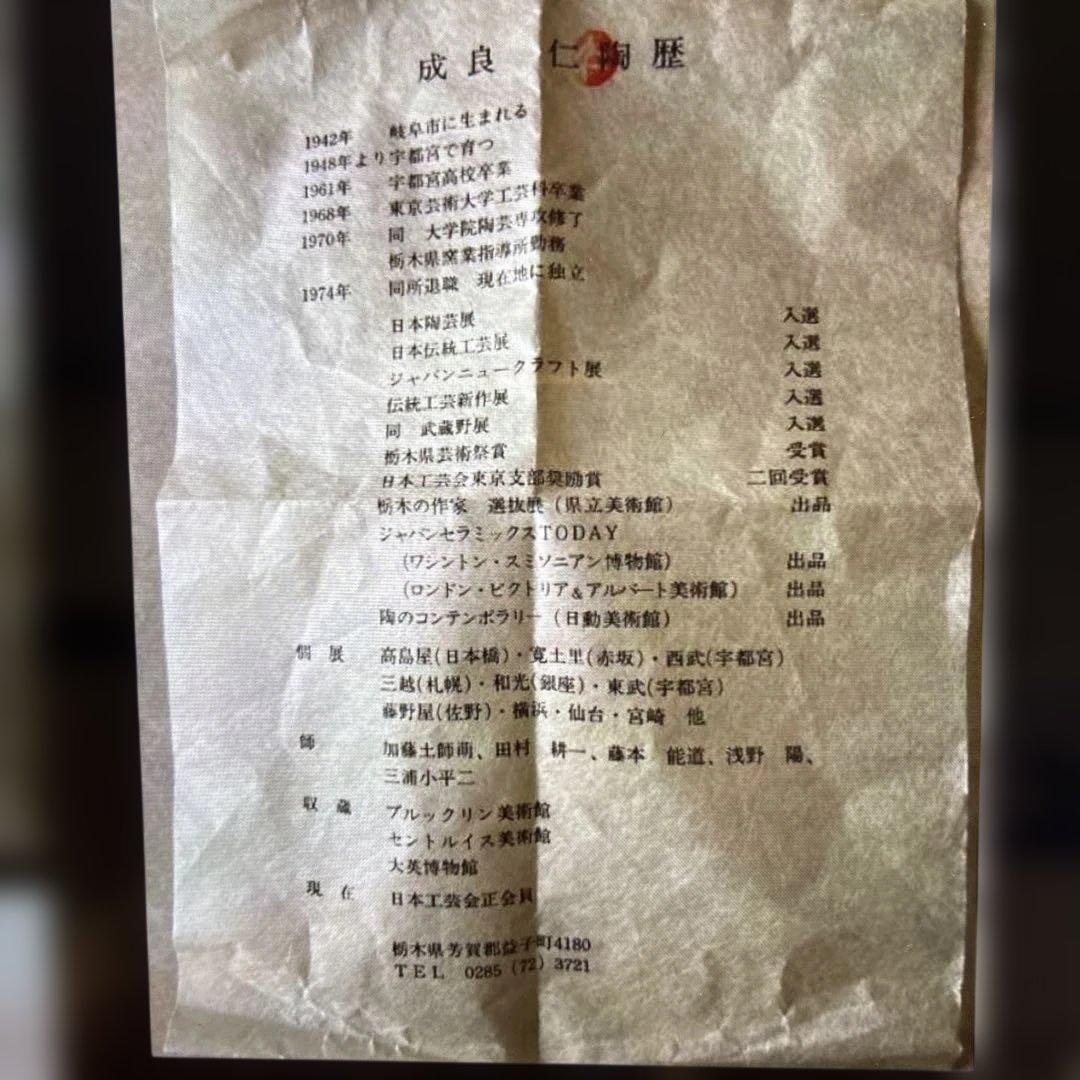 成良 仁陶歴
1942年 岐阜市に生まれる
1948年より宇都宮で育つ
1961年 宇都宮高校卒業
1968年 東京芸術大学工芸科卒業
1970年 同 大学院陶芸専攻修了
栃木県窯業指導所勤務
1974年 同所退職 現在地に独立
日本陶芸展 入選
日本伝統工芸展 入選
ジャパンニュークラフト展 入選
伝統工芸新作展 入選
同 武蔵野展 入選
栃木県芸術祭賞 受賞
日本工芸会東京支部奨励賞 二回受賞
栃木の作家 選抜展(県立美術館) 出品
ジャパンセラミックスTODAY
(ワシントン・スミソニアン博物館) 出品
(ロンドン・ビクトリア&アルバート美術館) 出品
陶のコンテンポラリー(日動美術館) 出品
個展 高島屋(日本橋)・寛土里(赤坂)・西武(宇都宮)
三越(札幌)・和光(銀座)・東武(宇都宮)
藤野屋(佐野)・横浜・仙台・宮崎 他
師 加藤土師萌、田村 耕一、藤本 能道、浅野 陽、
三浦小平二
収蔵 ブルックリン美術館
セントルイス美術館
大英博物館
現在 日本工芸会正会員
栃木県芳賀郡益子町4180
TEL 0285(72)3721